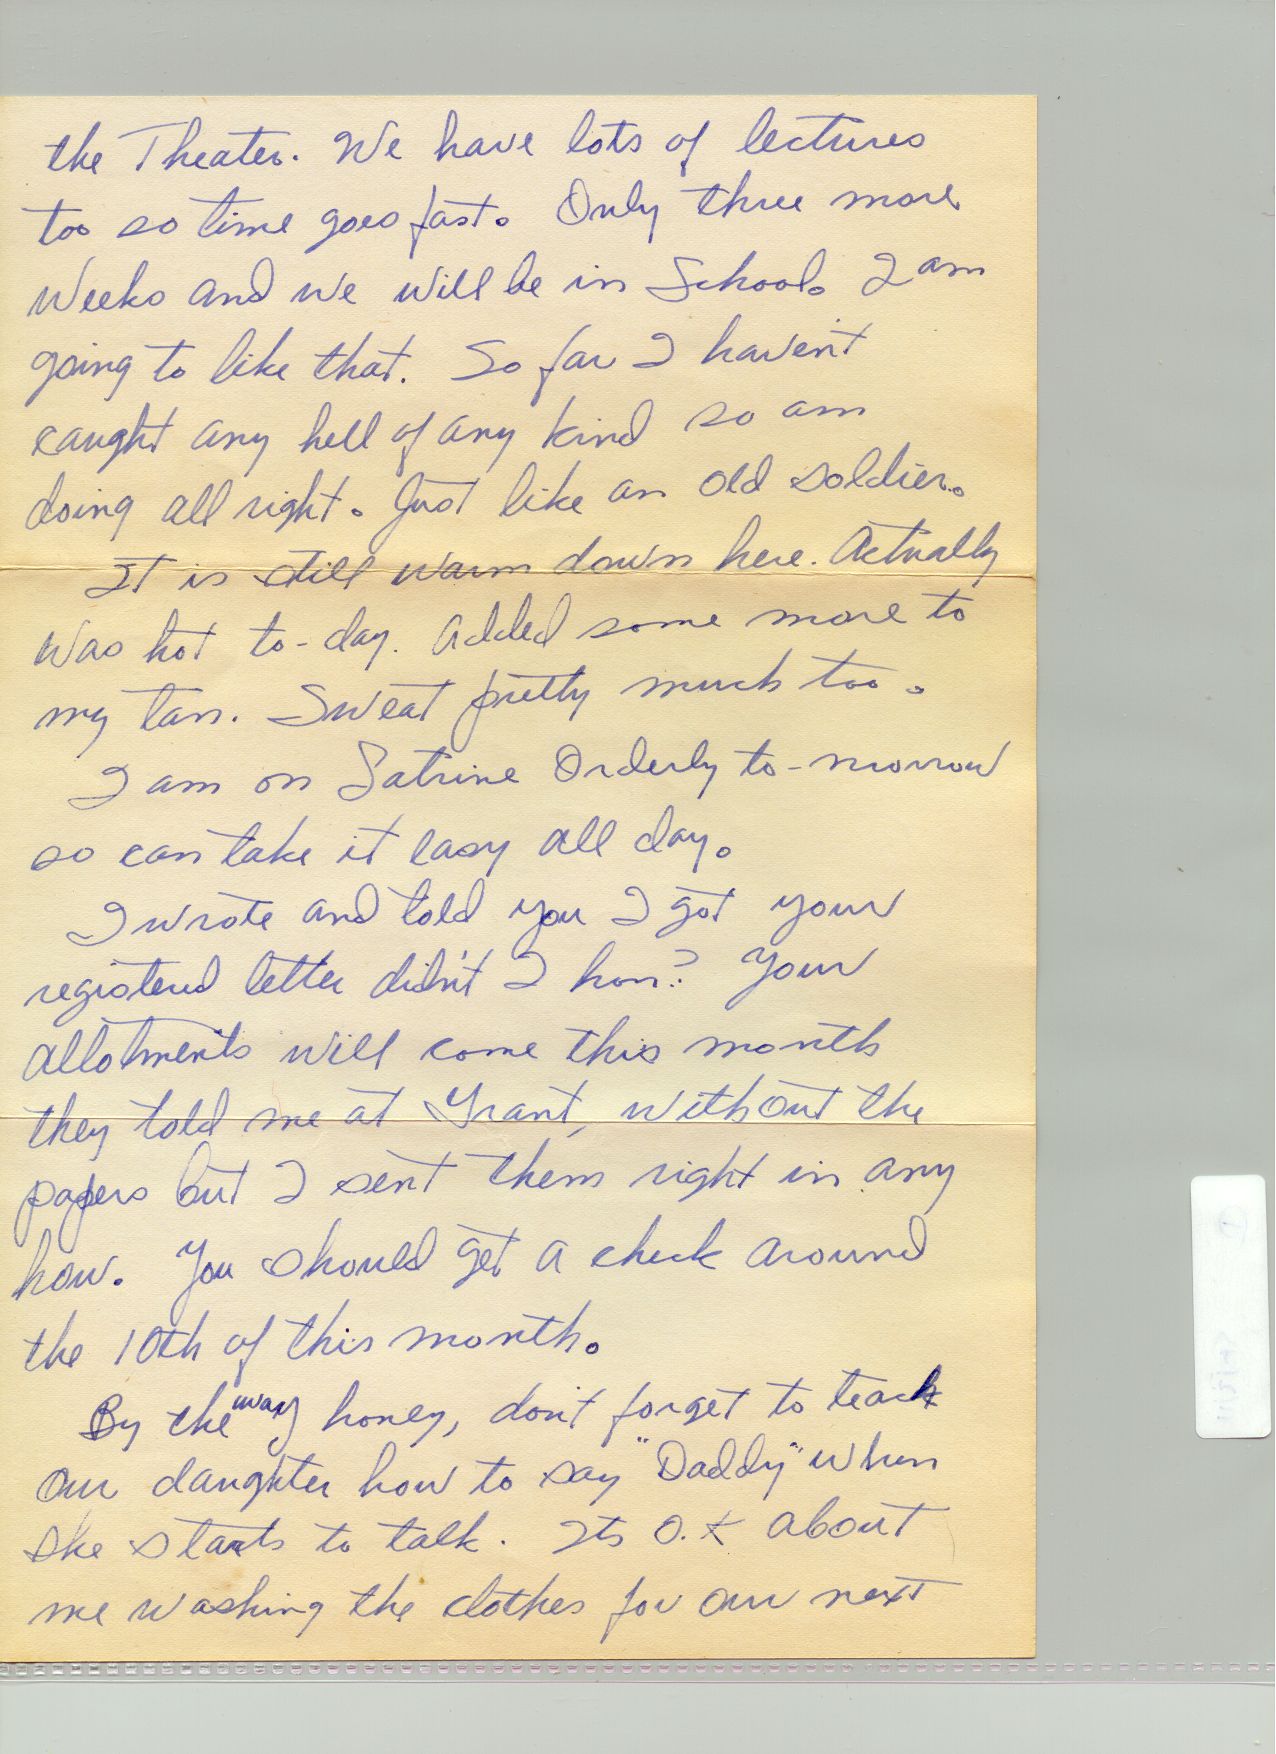 the Theater. We have lots of lectures
too so time goes fast. Only three more
weeks and we will be in School. I am
going to like that. So far I haven't
caught any hell of any kind so am
doing all right. Just like an old soldier.
It is still warm down here. Actually
was hot to-day. Added some more to
my tan. Sweat pretty much too.
I am on Latrine Orderly to-morrow
so can take it easy all day.
I wrote and told you I got your
registered letter didn't I hon? Your
allotments will come this month
they told me at Grant, without the
papers but I sent them right in any
how. You should get a check around
the 10th of this month.
By the way honey, don't forget to teach
our daughter how to say "Daddy" when
she starts to talk. Its O.K about
me washing the clothes for our next